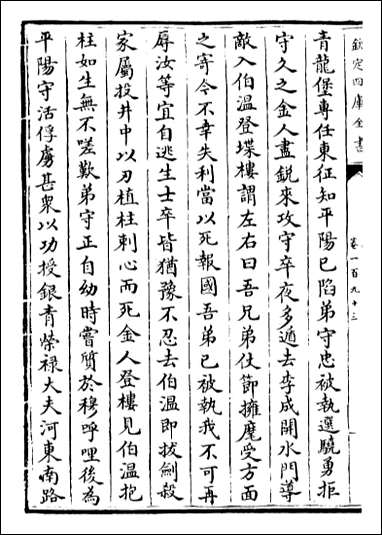 欽定四庫全書
卷一百九十三
青龍堡専任東征知平陽已陷弟守忠被執選驍勇拒
守久之金人盡銳來攻守卒夜多遁去李成開水門導
敵入伯温登堞樓謂左右曰吾兄弟仗節擁麾受方面
之寄今不幸失利當以死報國吾弟已被執我不可再
辱汝等宜自逃生士卒皆猶豫不忍去伯温即拔劍殺
家屬投井中以刃植柱刺心而死金人登樓見伯温抱
柱如生無不嗟歎弟守正自幼時嘗質於穆呼哩後為
平陽守活俘虜甚衆以功授銀青榮禄大夫河東南路